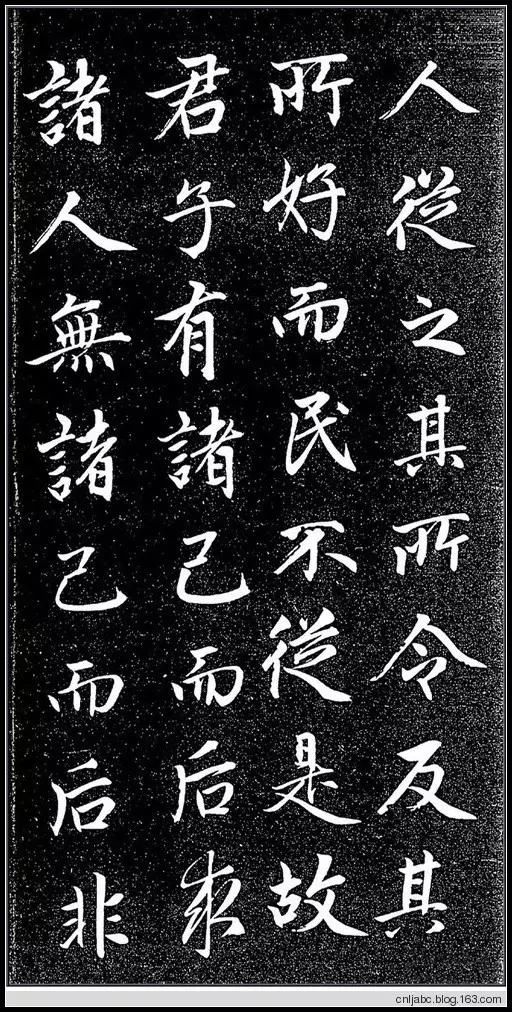 人從之其所令反其
所好而民不從是故
君子有諸己而后求
諸人無諸己而后非
cnljabc.blog.163.com